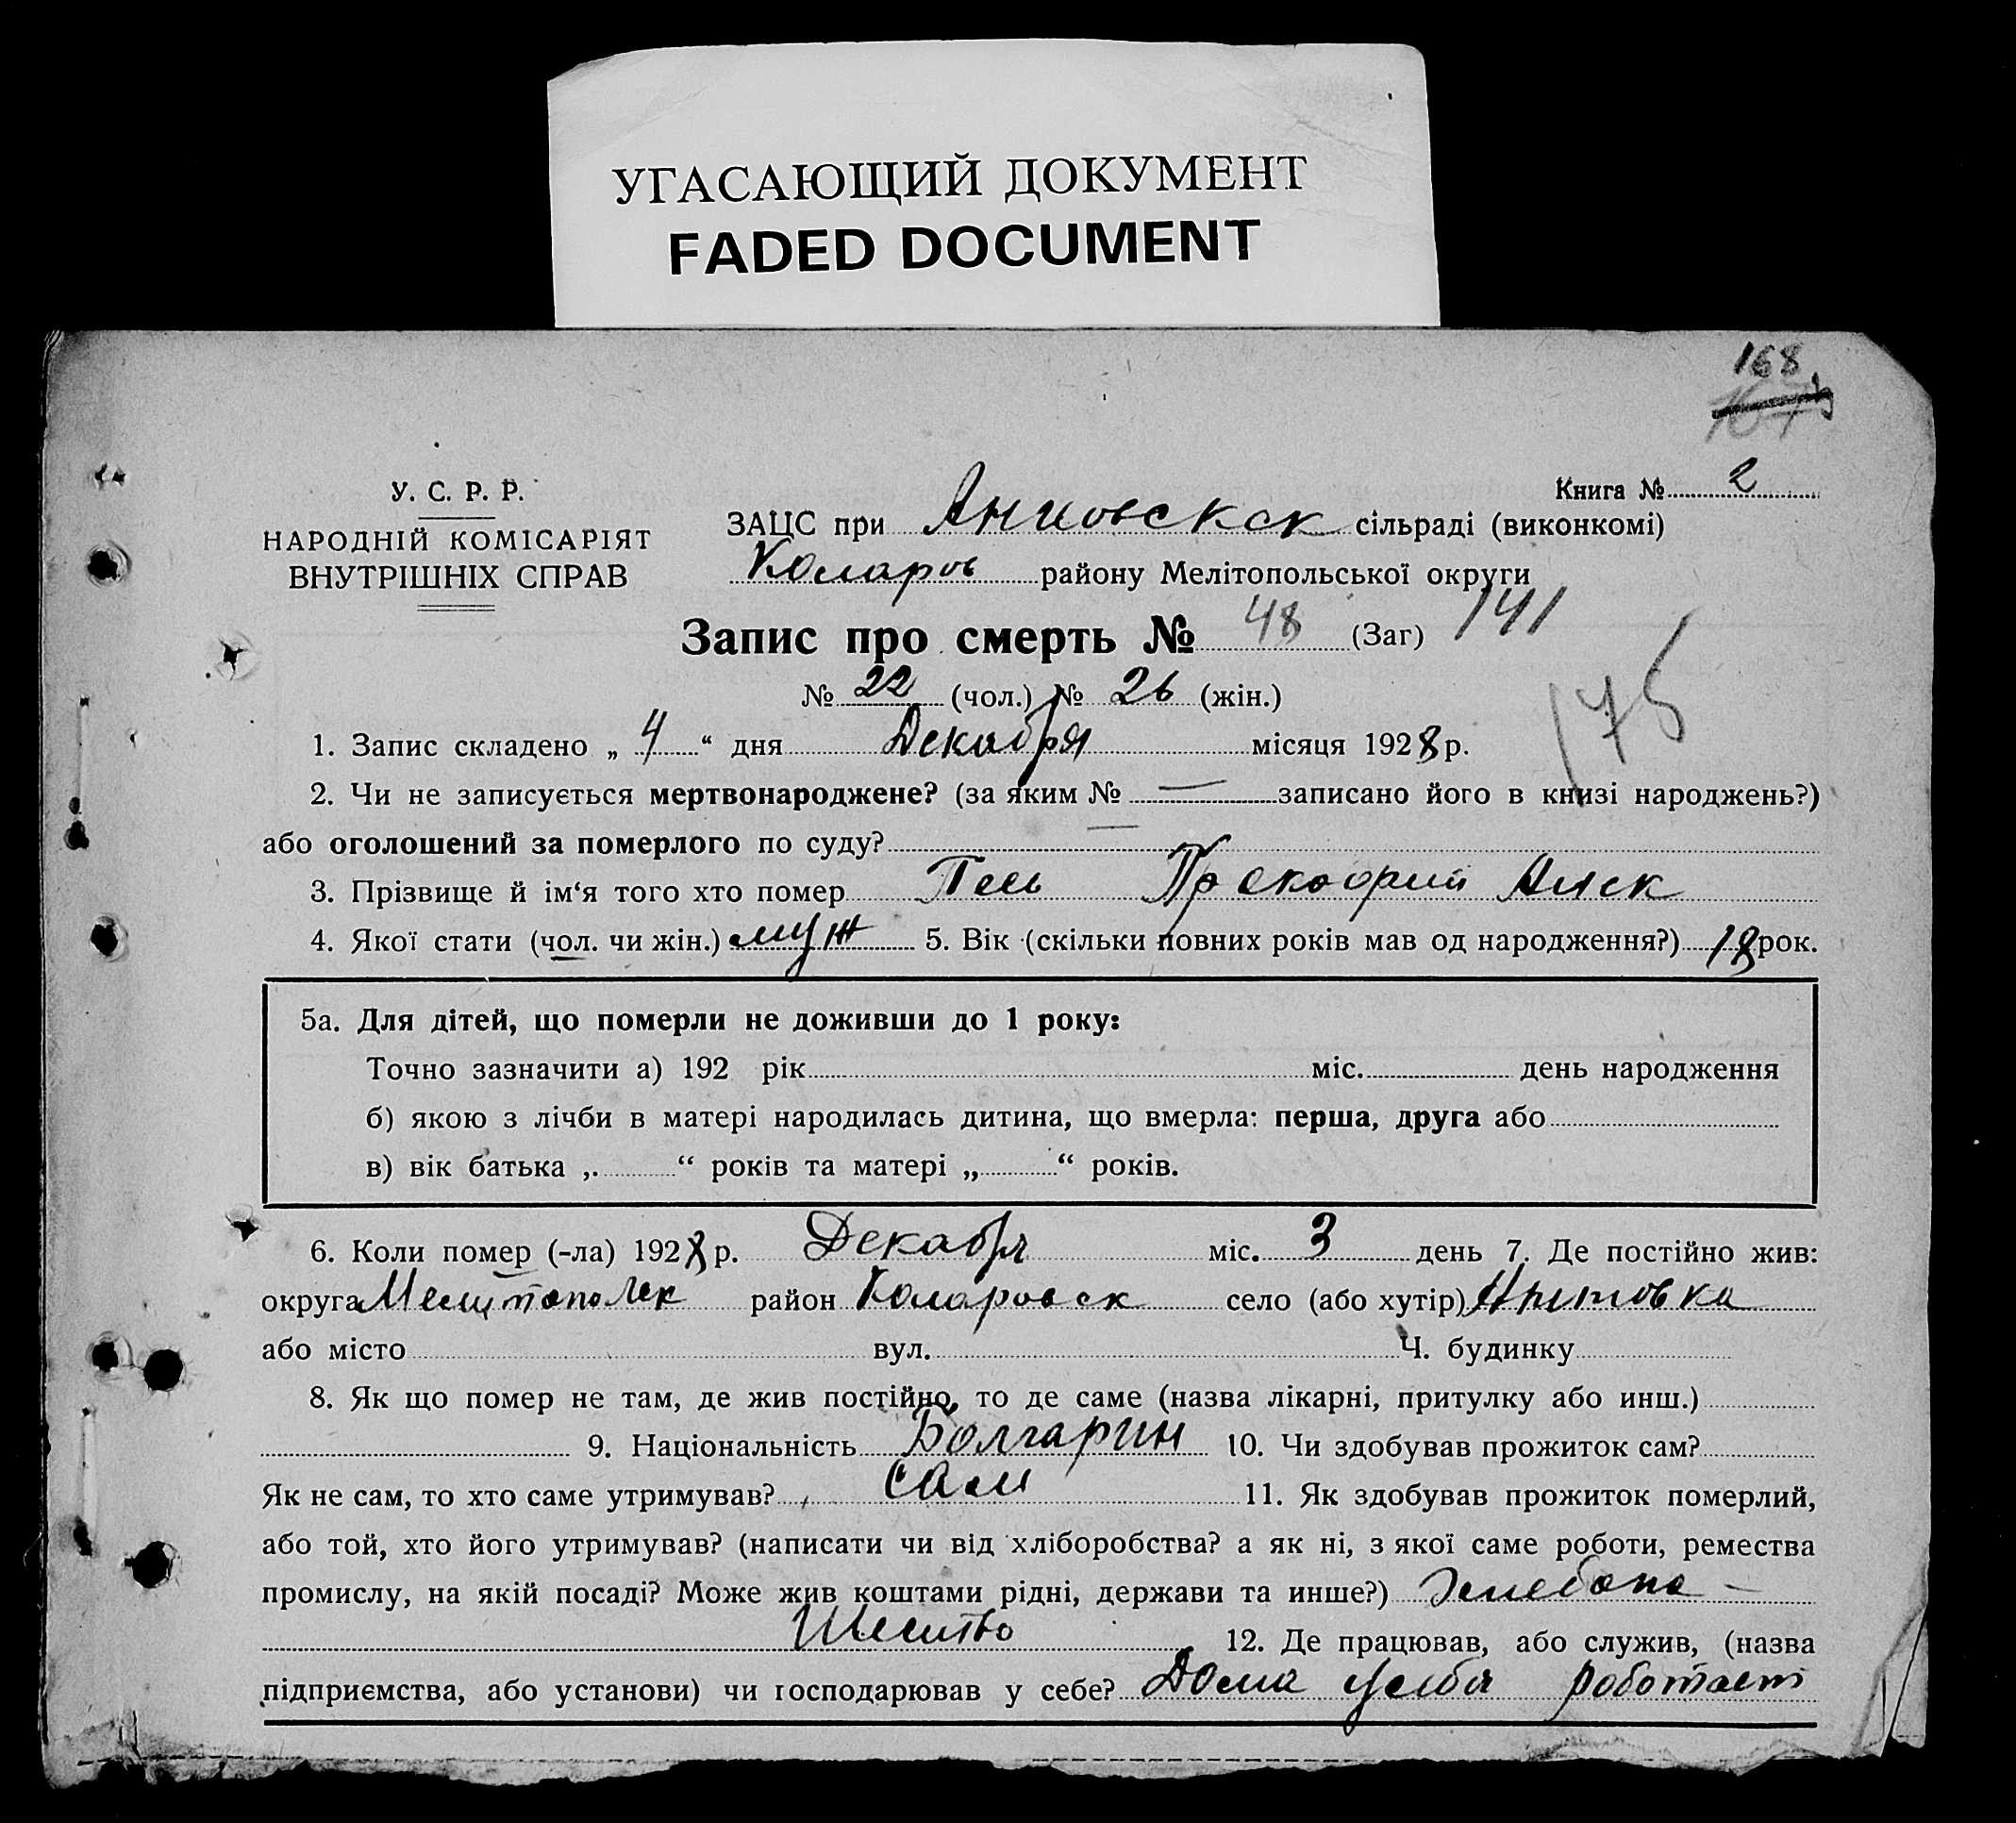 УГАСАЮЩИЙ ДОКУМЕНТ
FADED DOCUMENT
168
У. С. Р. Р.
НАРОДНІЙ КОМІСАРІЯТ
ВНУТРІШНІХ СПРАВ
Книга № 2
ЗАЦС при сільраді (виконкомі)
Коларов району Мелітопольської округи
Запис про смерть № 48 (Заг) 141
№ 22 (чол.) № 26 (жін.)
175
1. Запис складено „ 4 “ дня Декабря місяця 1928 р.
2. Чи не записується мертвонароджене? (за яким № — записано його в книзі народжень?)
або оголошений за померлого по суду? —
3. Прізвище й ім‘я того хто помер
4. Якої стати (чол. чи жін.) муж 5. Вік (скільки повних років мав од народження?) 18 рок.
5а. Для дітей, що померли не доживши до 1 року:
Точно зазначити а) 192 рік міс. день народження
б) якою з лічби в матері народилась дитина, що вмерла: перша, друга або
в) вік батька „ “ років та матері „ “ років.
6. Коли помер (-ла) 1928 р. Декабря міс. 3 день 7. Де постійно жив:
округа район Коларовск село (або хутір)
або місто вул. Ч. будинку
8. Як що помер не там, де жив постійно, то де саме (назва лікарні, притулку або инш.)
9. Національність Болгарин 10. Чи здобував прожиток сам?
Як не сам, то хто саме утримував? сам 11. Як здобував прожиток померлий,
або той, хто його утримував? (написати чи від хліборобства? а як ні, з якої саме роботи, ремества
промислу, на якій посаді? Може жив коштами рідні, держави та инше?)
12. Де працював, або служив, (назва
підприємства, або установи) чи господарював у себе? Дома усебя работает